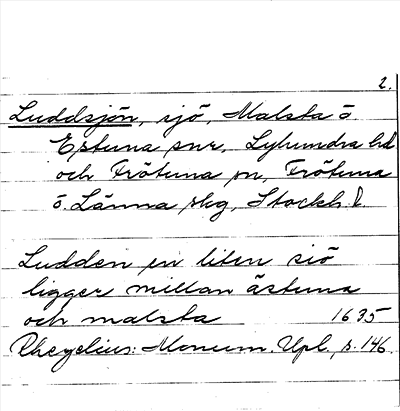 2.
Luddsjön, sjö, Malsta o
Estuna snr, Lyhundra hd
och Frötuna sn, Frötuna
o. Länna skg, Stockh. l.
Ludden en liten siö
ligger millan ästuna
och malsta 1635
Rhezelius: Monum. Upl., s. 146.